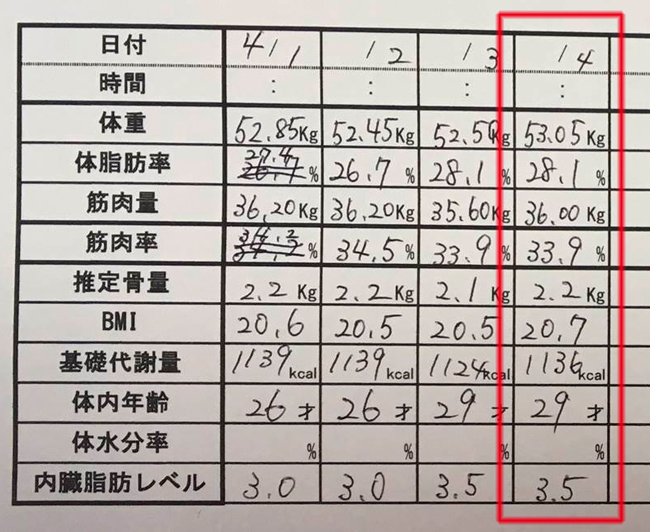 日付 4/1 /2 /3 /4
時間 : : : :
体重 52.85Kg 52.45Kg 52.50Kg 53.05Kg
体脂肪率 27.4 % 26.7 % 28.1 % 28.1 %
筋肉量 36.20Kg 36.20Kg 35.60Kg 36.00Kg
筋肉率 34.2 % 34.5% 33.9 % 33.9 %
推定骨量 2.2 Kg 2.2 Kg 2.1 Kg 2.2 Kg
BMI 20.6 20.5 20.5 20.7
基礎代謝量 1139kcal 1139kcal 1124kcal 1136kcal
体内年齢 26才 26才 29才 29才
体水分率 % % % %
内臓脂肪レベル 3.0 3.0 3.5 3.5